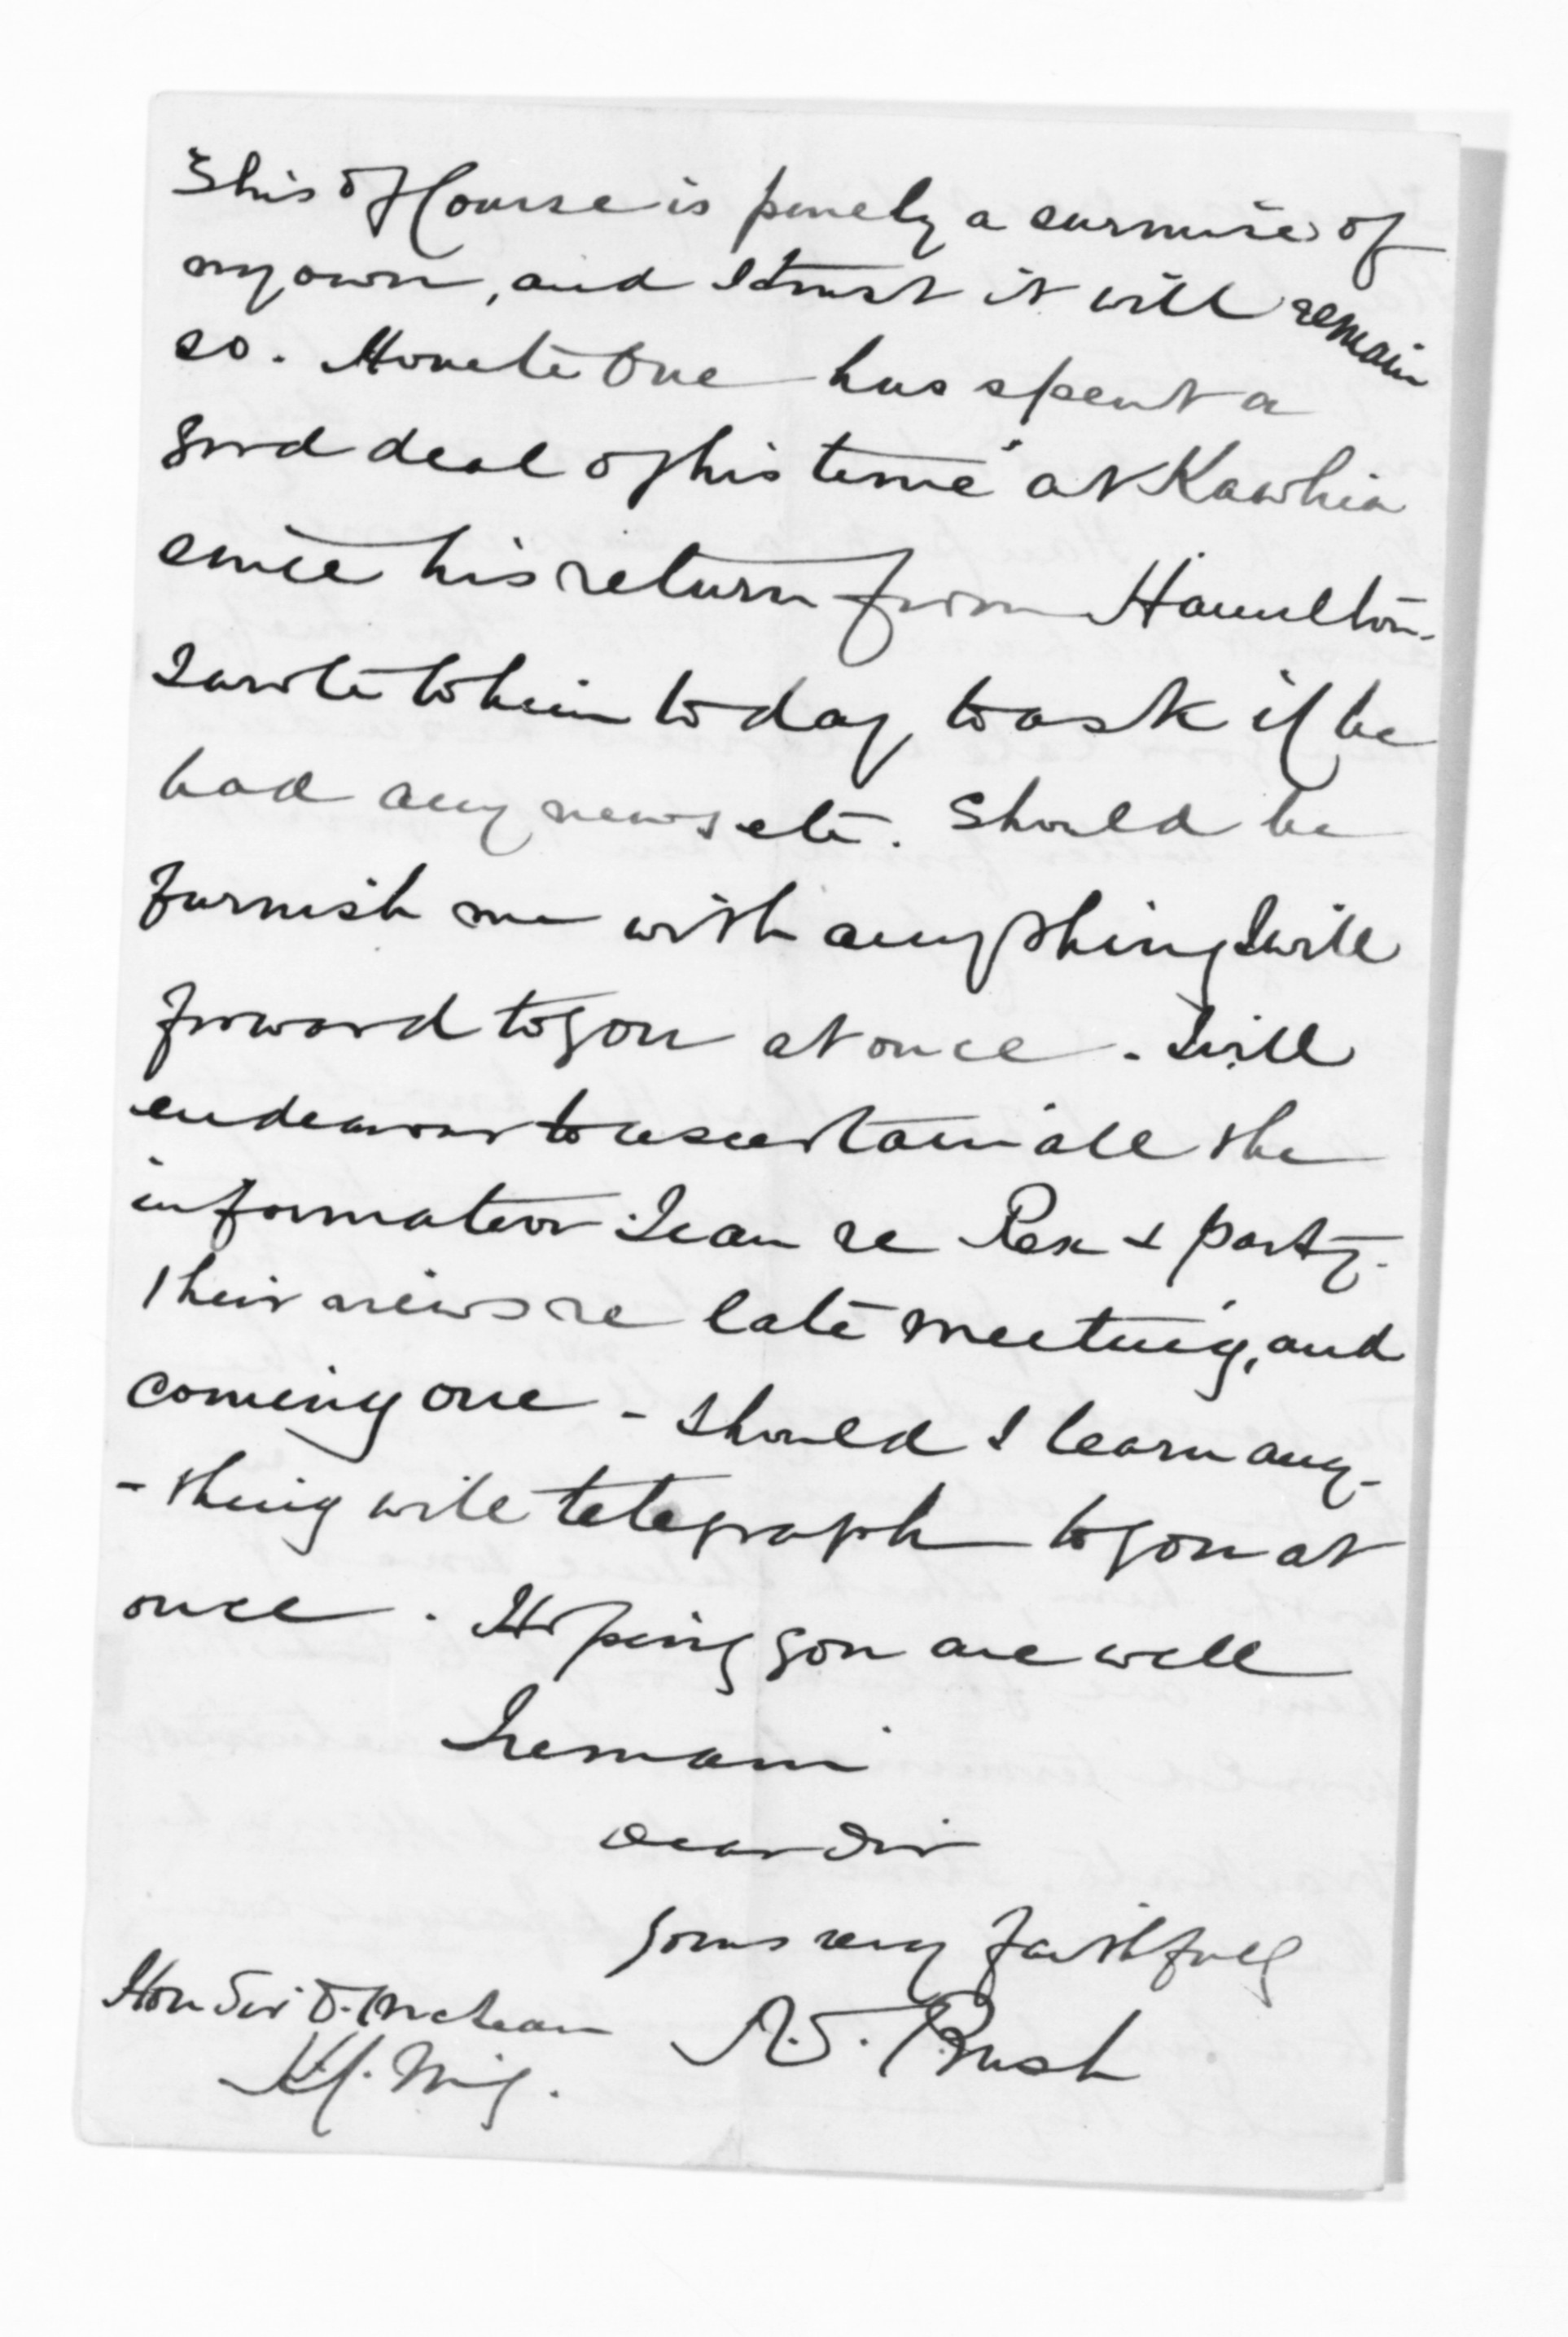 This of Course is purely a surmise of
my own, and I trust it will remain
so. Honeti One has spent a
good deal of his time at Kawhia
since his return from Hamilton.
I wrote to him to day, to ask if he
had any news etc. Should he
furnish me with anything I will
forward to you at once. I will
endeavour to ascertain all the
information I can re Rex & party.
Their views re late meeting, and
coming one - Should I learn any-
-thing will telegraph to you at
once. Hoping you are well
I remain
Dear Sir
Yours very faithfully
Hon Sir D. McLean R.S. Bush